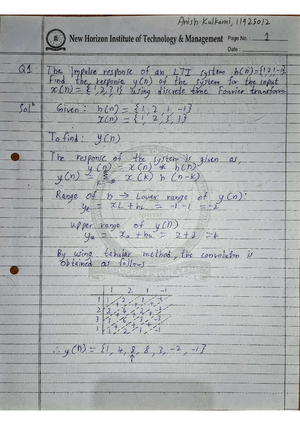 Anish Kulkarni, 11925012
New Horizon Institute of Technology & Management
Page No.: 1
Date:
Q1 The Impulse response of an LTI system h(n)={1,2,1,-1}
Find the response y(n) of the system for the input
x(n) = {1,2,3,1} using discrete time Fourier transform
Solⁿ Given: h(n) = {1, 2, 1, -1}
x(n) = {1, 2, 3, 1}
To find: y(n)
The response of the system is given as,
y(n) = x(n) * h(n)
x(k) h(n-k)
Range of n → Lower range of y(n):
Upper range of y(n)
By using tabular method, the convolution is
obtained as follows
1 2 1 -1
∴ y(n) = {1, 4, 8, 8, 3, -2, -1}
↑